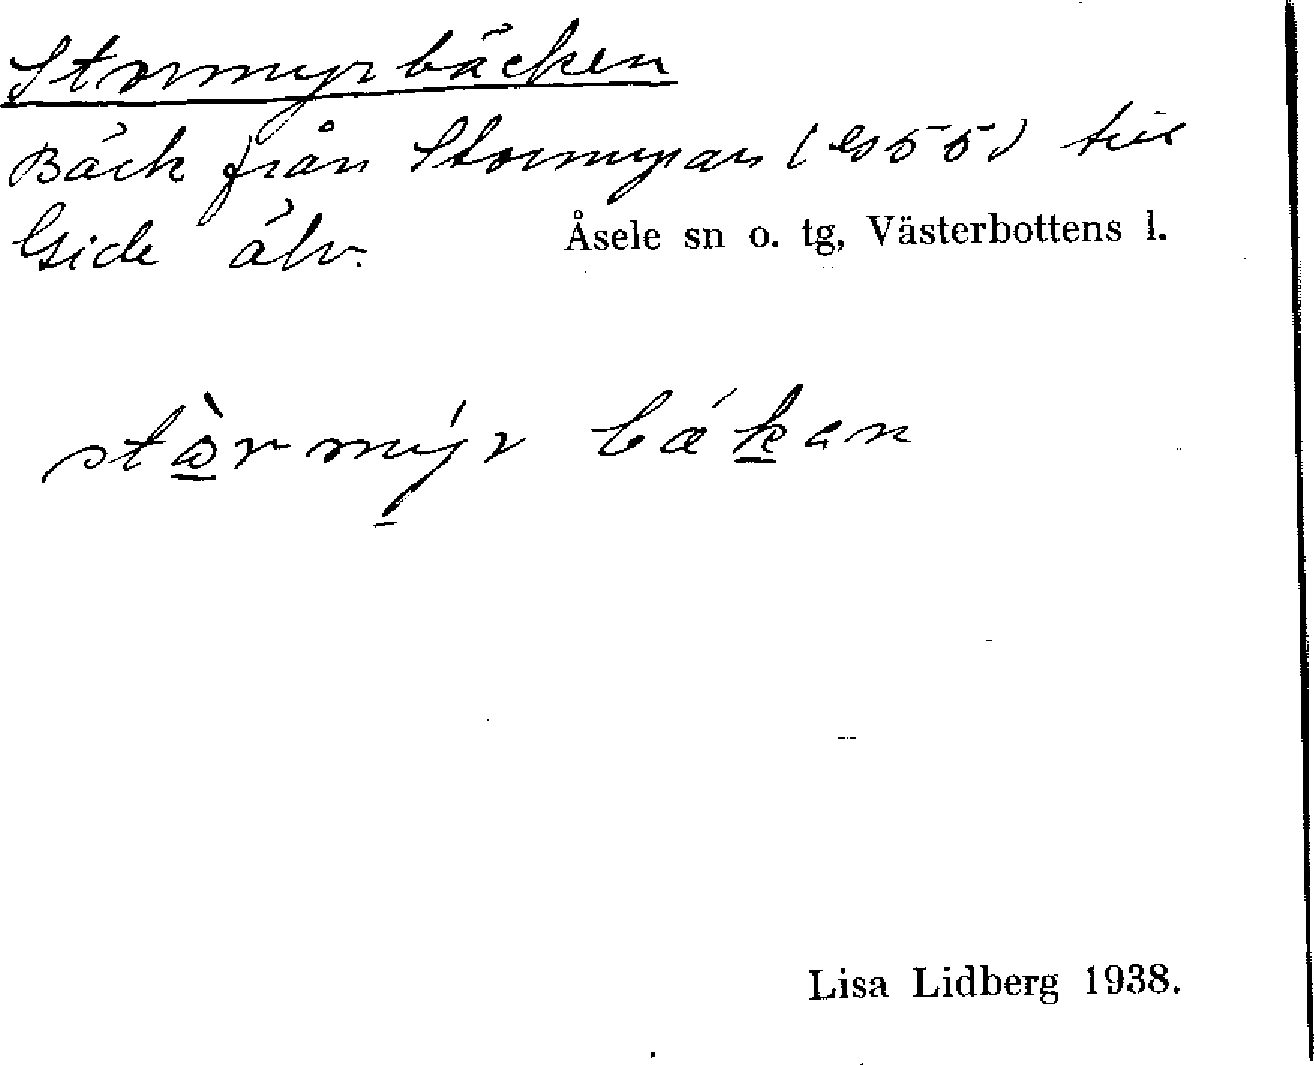 Stormyrbäcken
Bäck från Stormyran (55) till
Gide älv. Åsele sn o. tg, Västerbottens l.
stòrmýr bækan
Lisa Lidberg 1938.